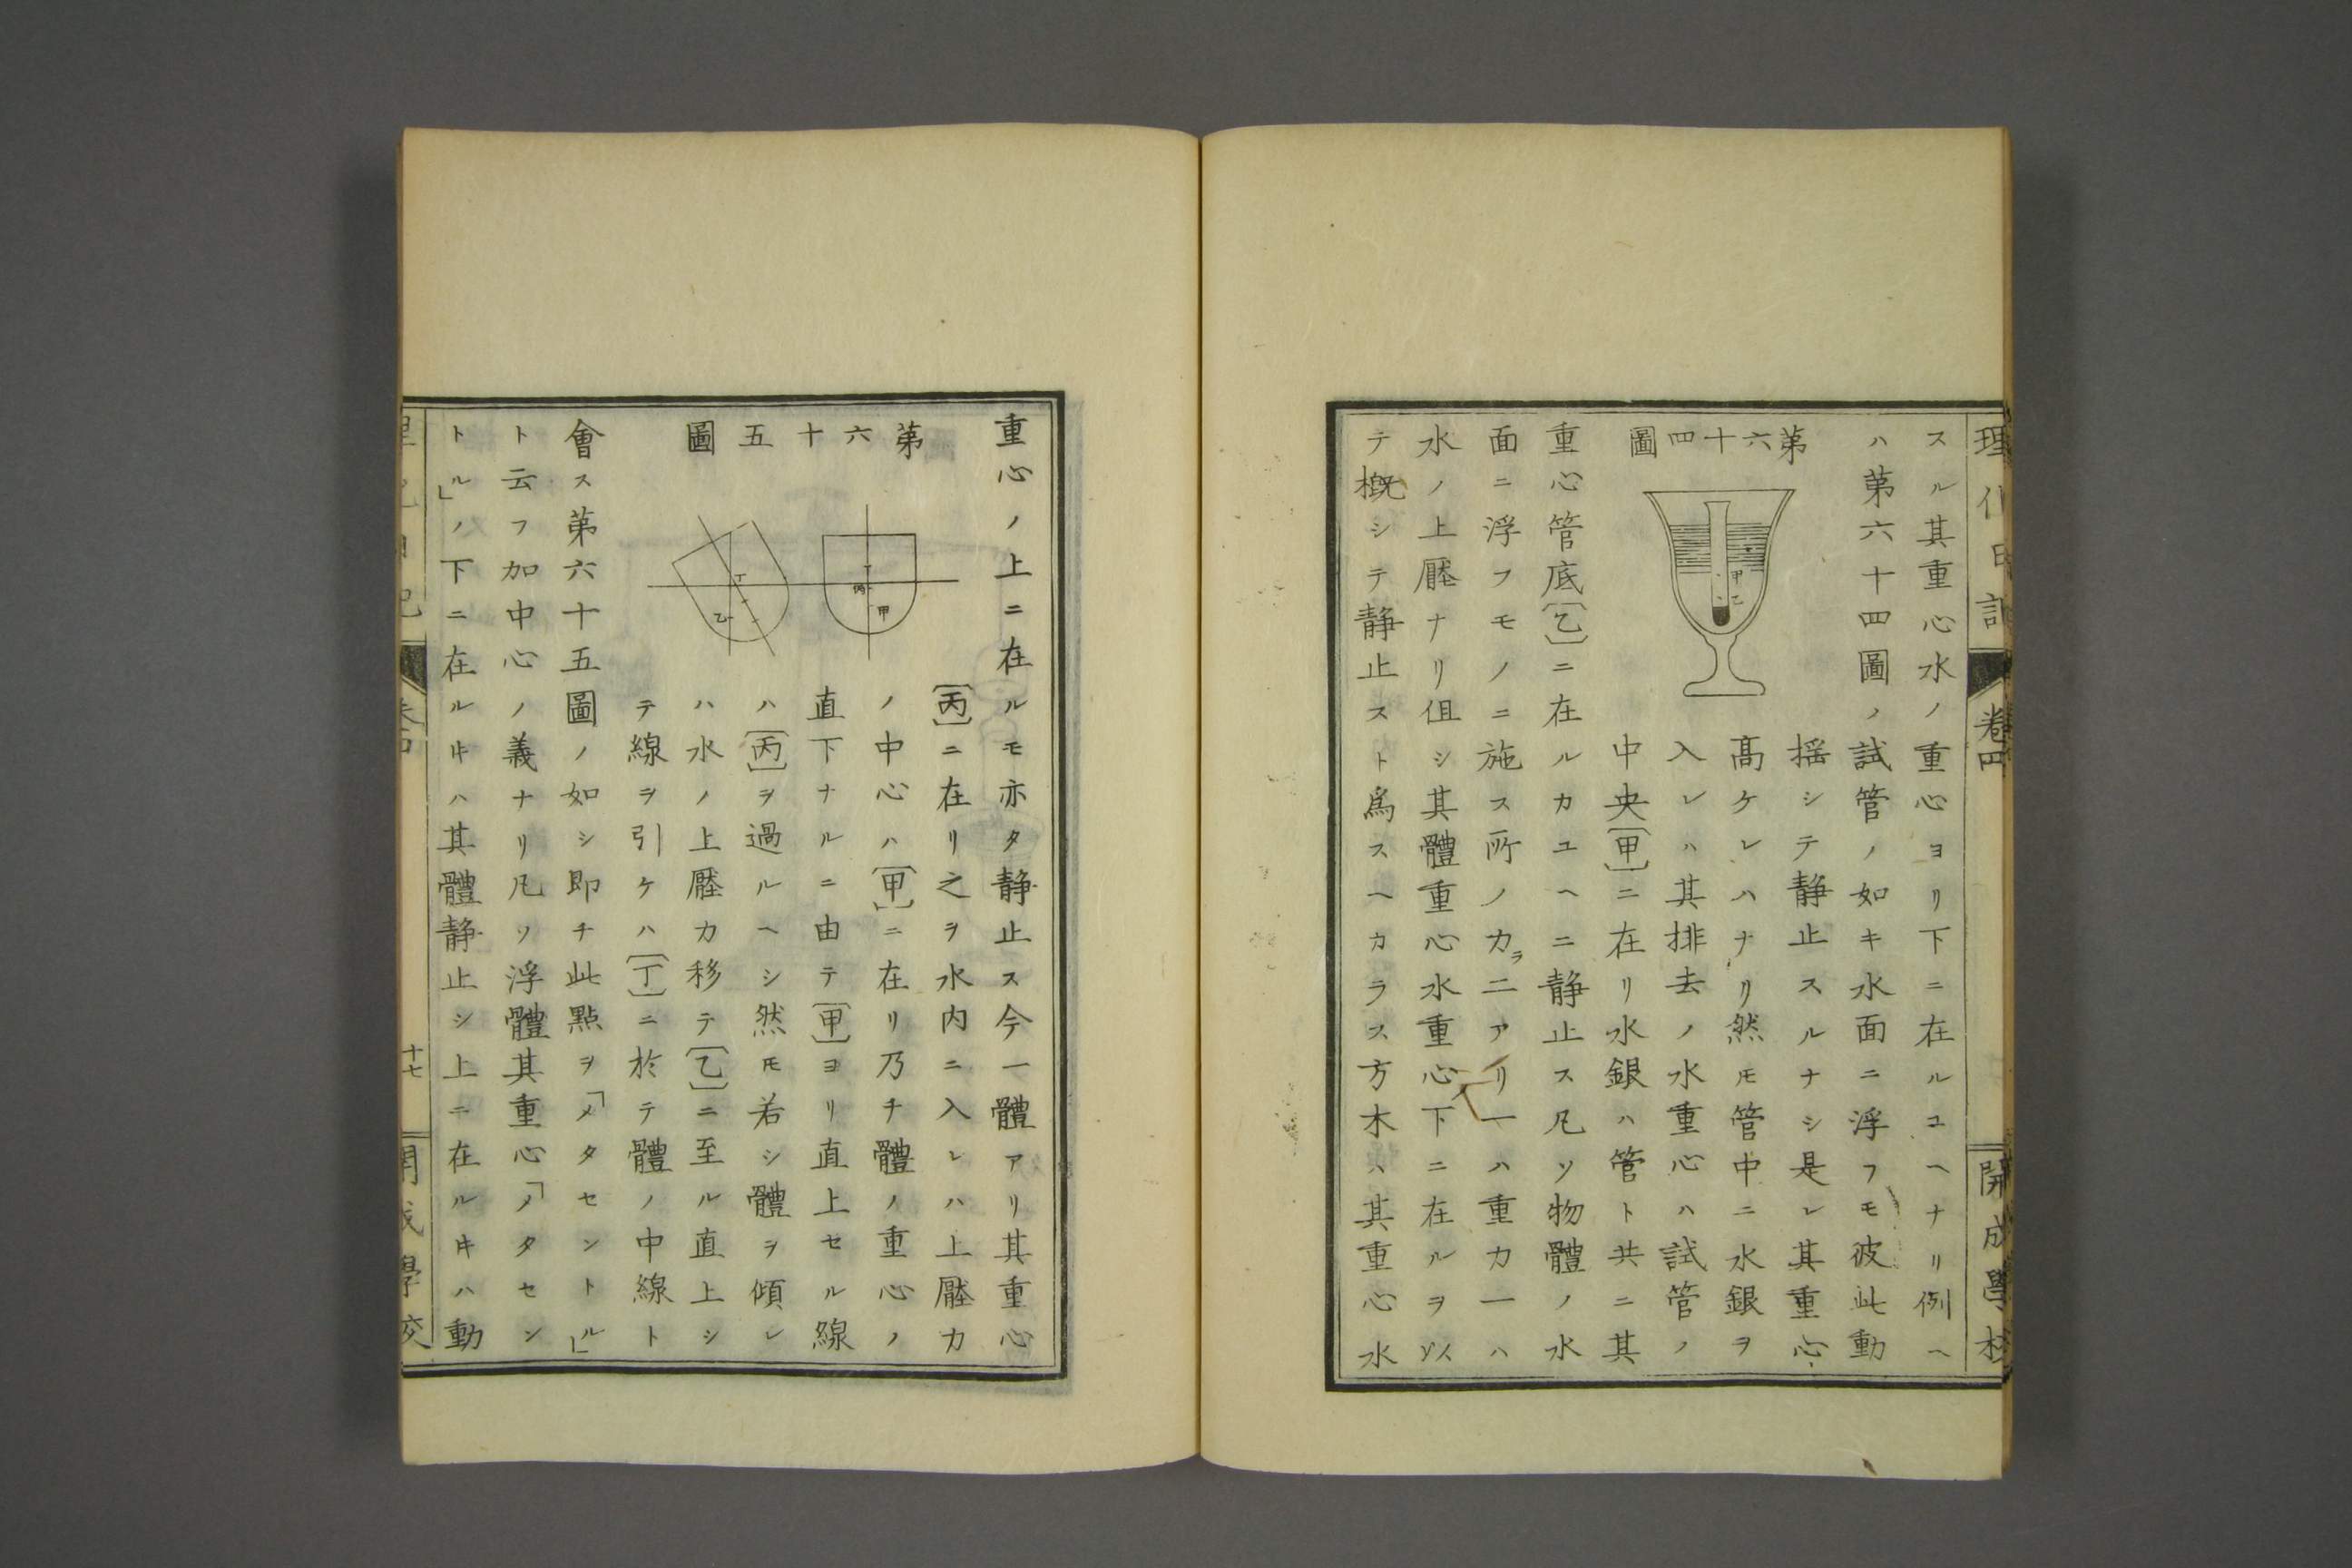 理化日記
卷四
開成學校
スル其重心水ノ重心ヨリ下ニ在ルユヘナリ例ヘ
ハ第六十四圖ノ試管ノ如キ水面ニ浮フモ彼此動
第六十四圖
甲
乙
揺シテ静止スルナシ是レ其重心
髙ケレハナリ然モ管中ニ水銀ヲ
入レハ其排去ノ水重心ハ試管ノ
中央〔甲〕ニ在リ水銀ハ管ト共ニ其
重心管底〔乙〕ニ在ルカユヘニ静止ス凡ソ物體ノ水
面ニ浮フモノニ施ス所ノ力ラ二アリ一ハ重力一ハ
水ノ上壓ナリ伹シ其體重心水重心下ニ在ルヲ以
テ概シテ静止スト爲スヘカラス方木ハ其重心水
重心ノ上ニ在ルモ亦タ静止ス今一體アリ其重心
第六十五圖
丁
丙
甲
丁
乙
〔丙〕ニ在リ之ヲ水内ニ入レハ上壓力
ノ中心ハ〔甲〕ニ在リ乃チ體ノ重心ノ
直下ナルニ由テ〔甲〕ヨリ直上セル線
ハ〔丙〕ヲ過ルヘシ然モ若シ體ヲ傾レ
ハ水ノ上壓力移テ〔乙〕ニ至ル直上シ
テ線ヲ引ケハ〔丁〕ニ於テ體ノ中線ト
會ス第六十五圖ノ如シ即チ此點ヲ「メタセントル」
ト云フ加中心ノ義ナリ凡ソ浮體其重心「メタセン
トル」ノ下ニ在ルキハ其體静止シ上ニ在ルキハ動
卷四
十七
開成學校